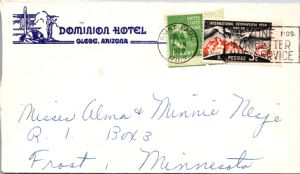 DOMINION HOTEL
GLOBE, ARIZONA
UNITED STATES
INTERNATIONAL GEOPHYSICAL YEAR
U.S. POSTAGE 3¢
NOS.
LETTER
SERVICE
Misses Alma & Minnie Nesje
R. 1. Box 3
Frost, Minnesota